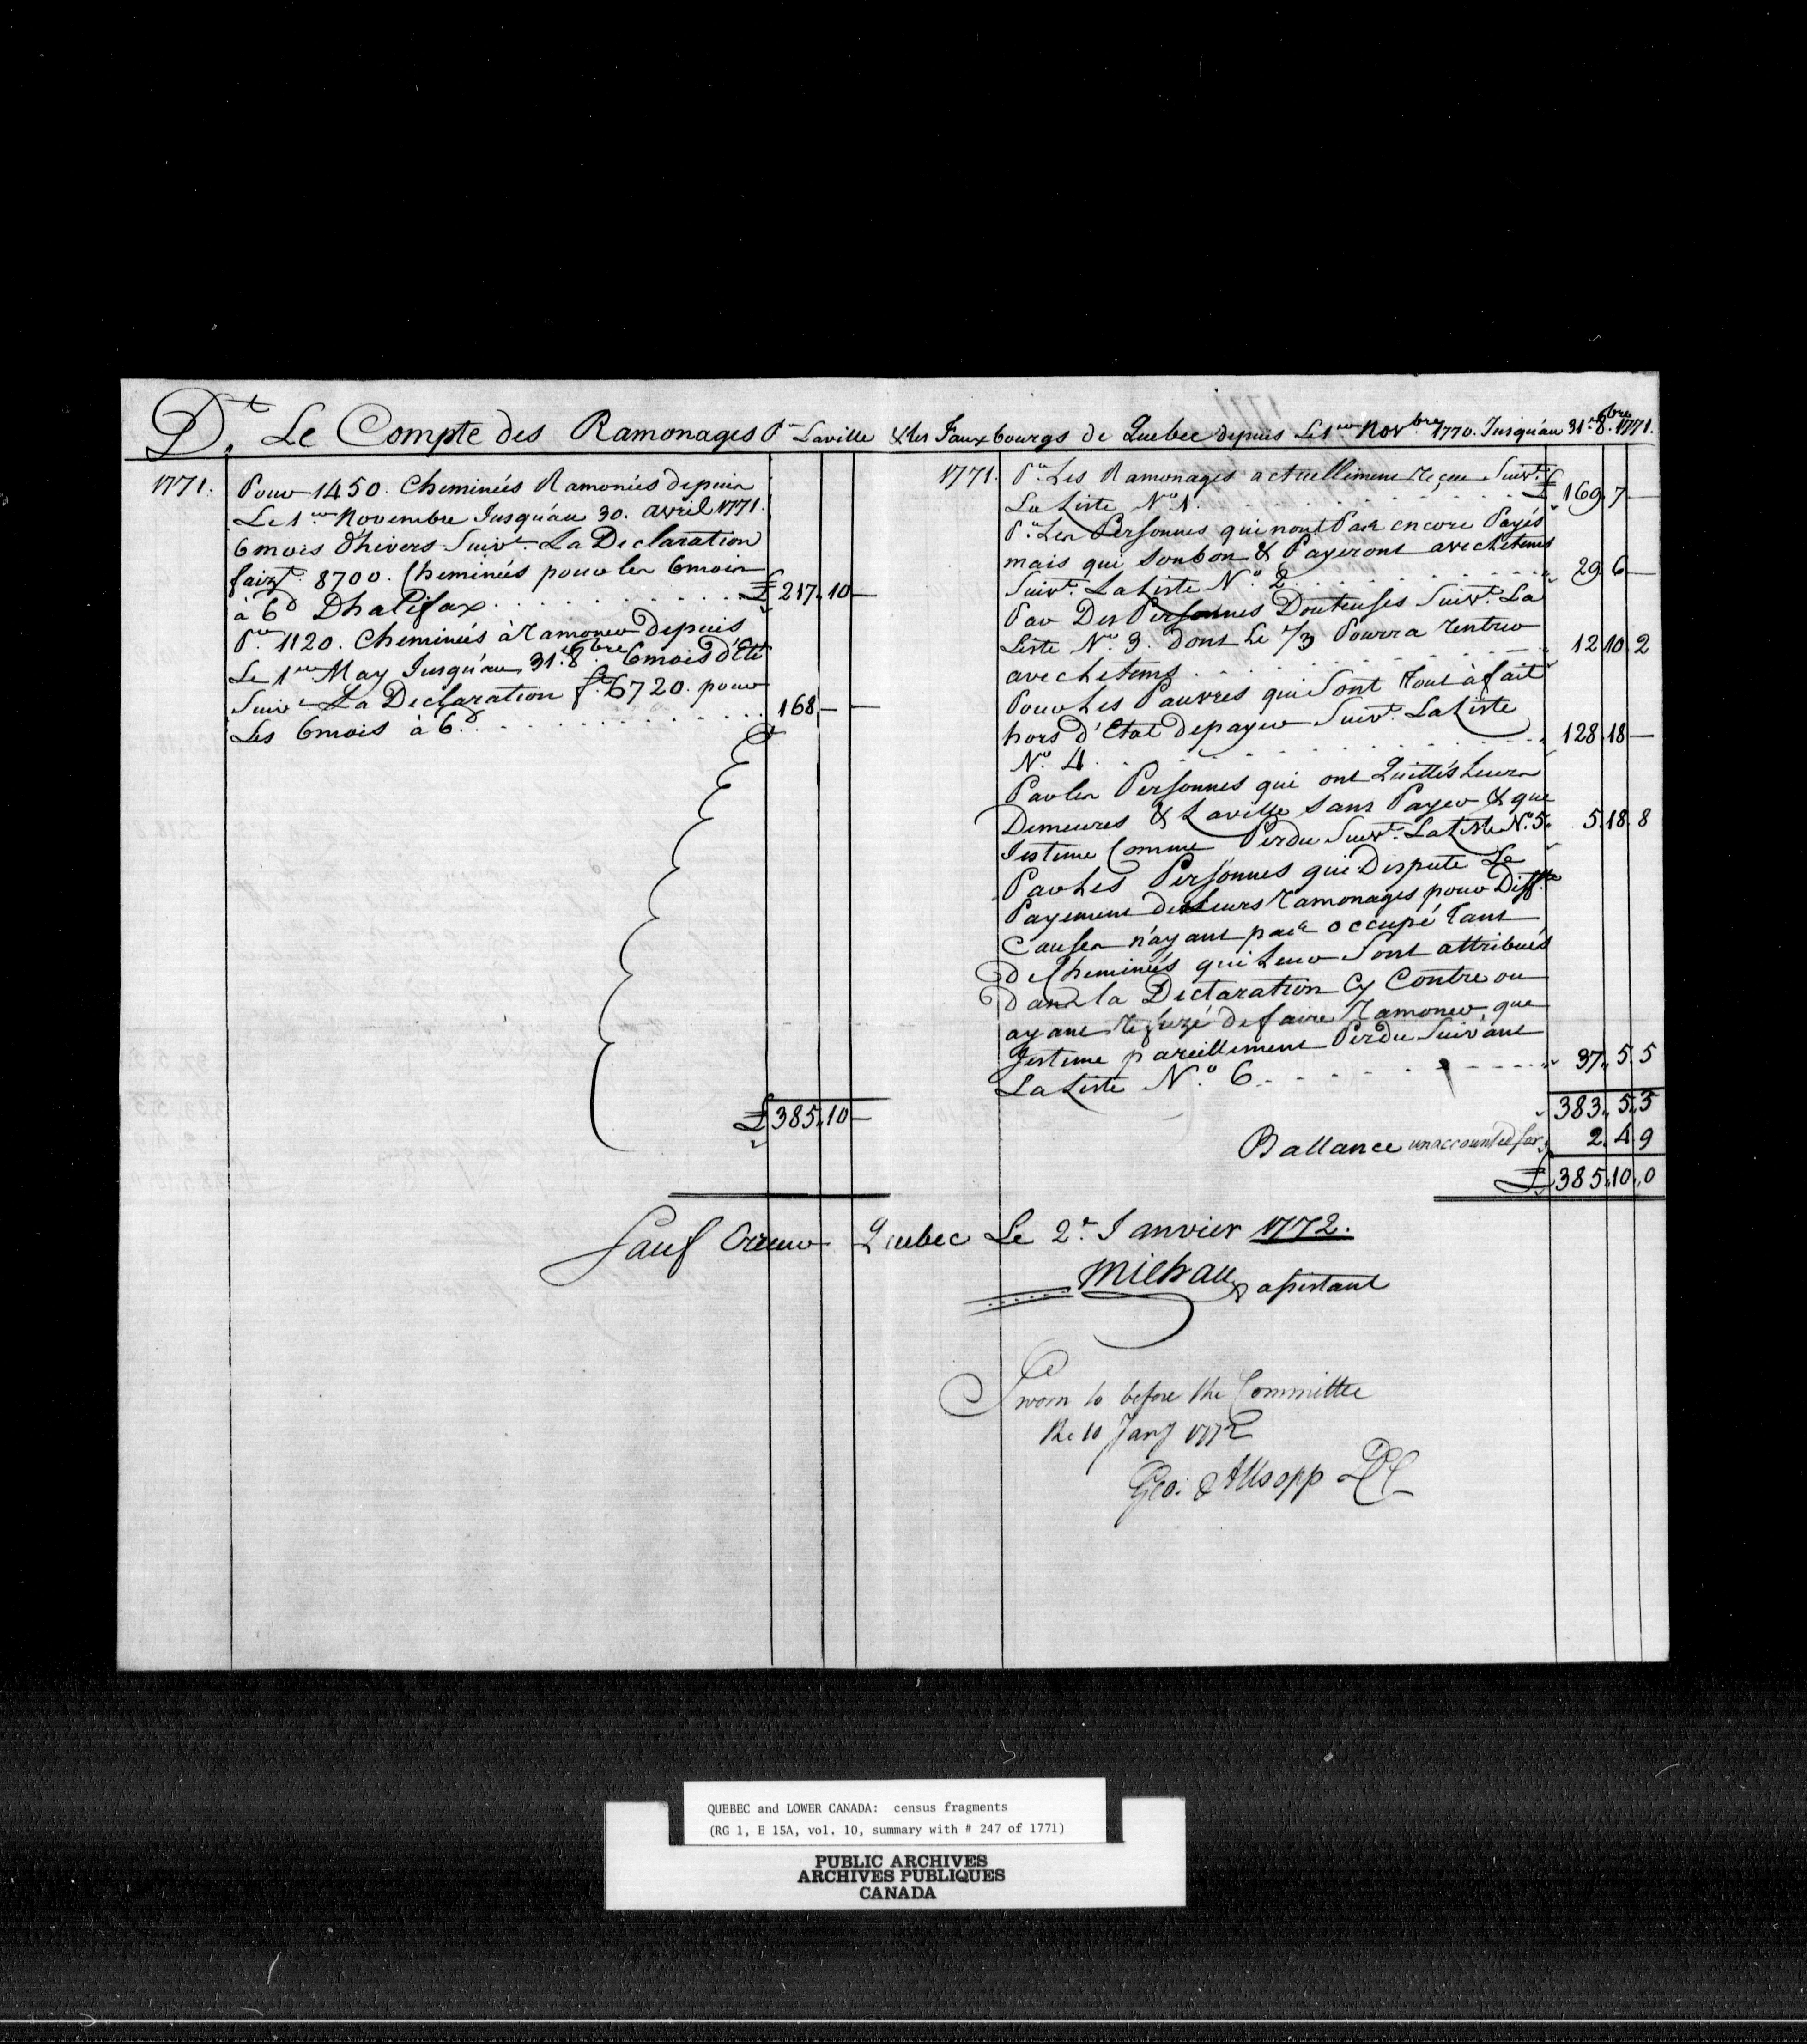 Dt. Le Compte des Ramonages Pr Laville & les Fauxbourgs de Quebec depuis Le 1er Novbre 1770. Jusqu'au 31e 8bre. 1771.
1771. Pour 1450. Cheminées Ramonées depuis
Le 1er Novembre Jusqu'au 30. avril 1771.
6 mois d'hivers Suivt. La Declaration
faist. 8700. Cheminées pour les 6 mois
à 6d Dhalifax . . . . . . . . . . . £ 217,, 10 —
Pr. 1120. Cheminées à Ramoner depuis
Le 1er May Jusqu'au 31e. 8bre. 6 mois d'Eté
Suivt La Declaration ft. 6720. pour
Les 6 mois à 6d. . . . . . . . . . . . . 168 — —
£ 385,, 10 —
1771. Pr. Les Ramonages actuellement Reçue Suivt.
La Liste No. 1. . . . . . . . . . . . £ 169,, 7 —
Pr. Les Personnes qui nont Pas encore Payés
mais qui Son bon & Payeront avec le tems
Suivt. La Liste No. 2. . . . . . . . . . . . . 29,, 6 —
Par Des Personnes Douteuses Suivt. La
Liste No. 3. dont Le 1/3 Pourra Rentrer
avec le tems . . . . . . . . . . . . . 12,, 10,, 2
Pour Les Pauvres qui Sont Tout à fait
hors d'Etat de payer Suivt. La Liste
No. 4 . . . . . . . . . . . . . . . 128,, 18 —
Par les Personnes qui ont Quittés Leurs
Demeures & Laville Sans Payer & que
Jestime Comme Perdu Suivt. La Liste No. 5. 5,, 18,, 8
Par Les Personnes qui Dispute Le
Payement de Leurs Ramonages pour Difftes
Causes n'ayant pas occupé Tant
de Cheminées qui Leur Sont attribués
dans la Declaration Cy Contre ou
ayant Refuzé de faire Ramoner, que
Jestime pareillement Perdu Suivant
La Liste No. 6. . . . . . . . . . . . . 37,, 5,, 5
383,, 5,, 3
Ballance unaccounted for 2,, 4,, 9
£ 385,, 10,, 0
Sauf Erreur Quebec Le 2e. Janvier 1772.
Michau assistant
Sworn to before the Committee
the 10 Jany 1772
Geo: Allsopp DCC
QUEBEC and LOWER CANADA: census fragments
(RG 1, E 15A, vol. 10, summary with # 247 of 1771)
PUBLIC ARCHIVES
ARCHIVES PUBLIQUES
CANADA